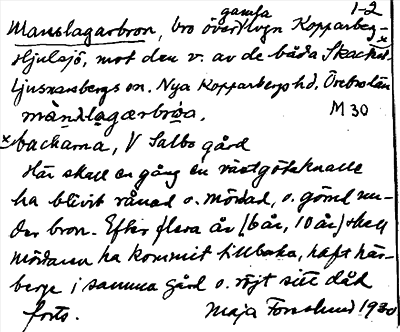 1-2
gamla
Manslagarbron, bro över lvgn Kopparberg-
Hjulsjö, mot den v. av de båda Skachet
Ljusnarsbergs sn. Nya Kopparbergs hd. Örebro län
màndlagarbróa. M 30
*backarna, V Salbo gård
Här skall en gång en västgötaknalle
ha blivit rånad o. mördad, o. gömd un-
der bron. Efter flera år (6 år, 10 år) skall
mördaren ha kommit tillbaka, haft här-
berge i samma gård o. röjt sitt dåd
forts. Maja Forslund 1930